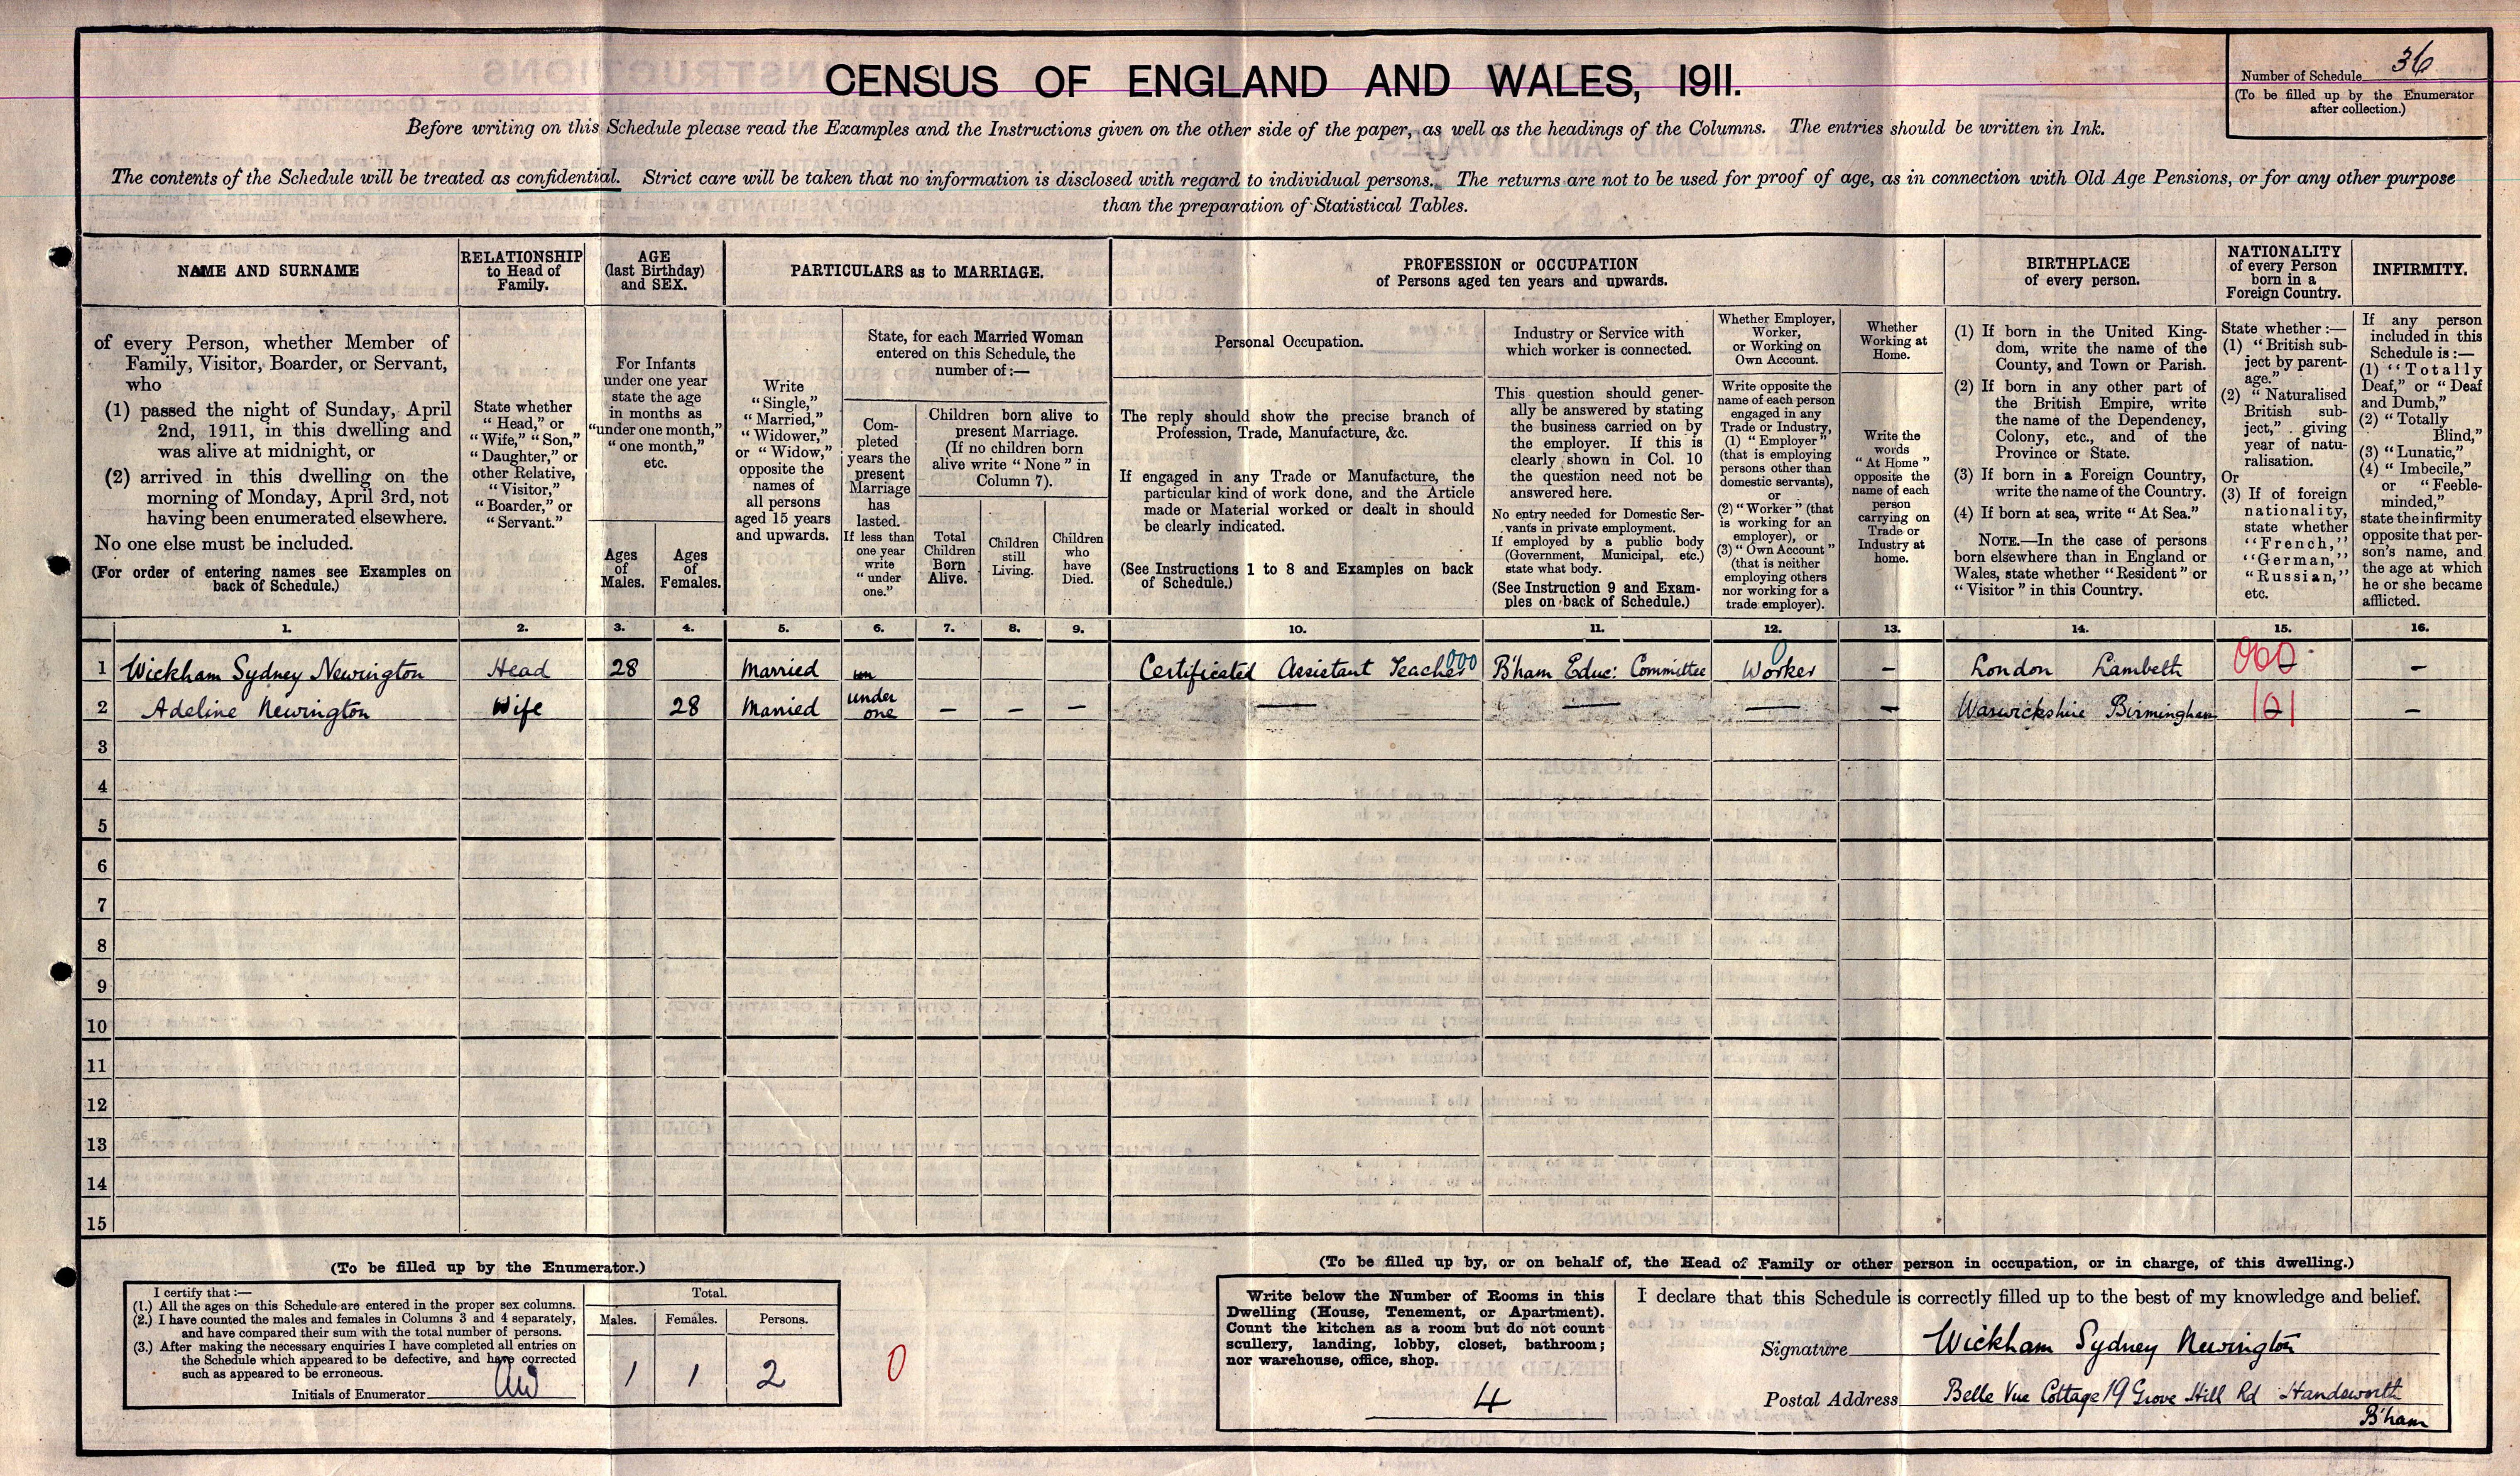 CENSUS OF ENGLAND AND WALES, 1911.
Number of Schedule 36
(To be filled up by the Enumerator
after collection.)
Before writing on this Schedule please read the Examples and the Instructions given on the other side of the paper, as well as the headings of the Columns. The entries should be written in Ink.
The contents of the Schedule will be treated as confidential. Strict care will be taken that no information is disclosed with regard to individual persons. The returns are not to be used for proof of age, as in connection with Old Age Pensions, or for any other purpose
than the preparation of Statistical Tables.
NAME AND SURNAME
of every Person, whether Member of
Family, Visitor, Boarder, or Servant,
who
(1) passed the night of Sunday, April
2nd, 1911, in this dwelling and
was alive at midnight, or
(2) arrived in this dwelling on the
morning of Monday, April 3rd, not
having been enumerated elsewhere.
No one else must be included.
(For order of entering names see Examples on
back of Schedule.)
RELATIONSHIP
to Head of
Family.
State whether
"Head," or
"Wife," "Son,"
"Daughter," or
other Relative,
"Visitor,"
"Boarder," or
"Servant."
AGE
(last Birthday)
and SEX.
For Infants
under one year
state the age
in months as
"under one month,"
"one month,"
etc.
Ages
of
Males.
Ages
of
Females.
PARTICULARS as to MARRIAGE.
Write
"Single,"
"Married,"
"Widower,"
or "Widow,"
opposite the
names of
all persons
aged 15 years
and upwards.
State, for each Married Woman
entered on this Schedule, the
number of:—
Com-
pleted
years the
present
Marriage
has
lasted.
If less than
one year
write
"under
one."
Children born alive to
present Marriage.
(If no children born
alive write "None" in
Column 7).
Total
Children
Born
Alive.
Children
still
Living.
Children
who
have
Died.
PROFESSION or OCCUPATION
of Persons aged ten years and upwards.
Personal Occupation.
The reply should show the precise branch of
Profession, Trade, Manufacture, &c.
If engaged in any Trade or Manufacture, the
particular kind of work done, and the Article
made or Material worked or dealt in should
be clearly indicated.
(See Instructions 1 to 8 and Examples on back
of Schedule.)
Industry or Service with
which worker is connected.
This question should gener-
ally be answered by stating
the business carried on by
the employer. If this is
clearly shown in Col. 10
the question need not be
answered here.
No entry needed for Domestic Ser-
vants in private employment.
If employed by a public body
(Government, Municipal, etc.)
state what body.
(See Instruction 9 and Exam-
ples on back of Schedule.)
Whether Employer,
Worker,
or Working on
Own Account.
Write opposite the
name of each person
engaged in any
Trade or Industry,
(1) "Employer"
(that is employing
persons other than
domestic servants),
or
(2) "Worker" (that
is working for an
employer), or
(3) "Own Account"
(that is neither
employing others
nor working for a
trade employer).
Whether
Working at
Home.
Write the
words
"At Home"
opposite the
name of each
person
carrying on
Trade or
Industry at
home.
BIRTHPLACE
of every person.
(1) If born in the United King-
dom, write the name of the
County, and Town or Parish.
(2) If born in any other part of
the British Empire, write
the name of the Dependency,
Colony, etc., and of the
Province or State.
(3) If born in a Foreign Country,
write the name of the Country.
(4) If born at sea, write "At Sea."
NOTE.—In the case of persons
born elsewhere than in England or
Wales, state whether "Resident" or
"Visitor" in this Country.
NATIONALITY
of every Person
born in a
Foreign Country.
State whether:—
(1) "British sub-
ject by parent-
age."
(2) "Naturalised
British sub-
ject," giving
year of natu-
ralisation.
Or
(3) If of foreign
nationality,
state whether
"French,"
"German,"
"Russian,"
etc.
INFIRMITY.
If any person
included in this
Schedule is:—
(1) "Totally
Deaf," or "Deaf
and Dumb,"
(2) "Totally
Blind,"
(3) "Lunatic,"
(4) "Imbecile,"
or "Feeble-
minded,"
state the infirmity
opposite that per-
son's name, and
the age at which
he or she became
afflicted.
1. 2. 3. 4. 5. 6. 7. 8. 9. 10. 11. 12. 13. 14. 15. 16.
1 Wickham Sydney Newington Head 28 Married Certificated Assistant Teacher 000 B'ham Educ: Committee Worker 0 — London Lambeth 000 —
2 Adeline Newington Wife 28 Married under one — — — — — — — Warwickshire Birmingham 101 —
3
4
5
6
7
8
9
10
11
12
13
14
15
(To be filled up by the Enumerator.)
I certify that:—
(1.) All the ages on this Schedule are entered in the proper sex columns.
(2.) I have counted the males and females in Columns 3 and 4 separately,
and have compared their sum with the total number of persons.
(3.) After making the necessary enquiries I have completed all entries on
the Schedule which appeared to be defective, and have corrected
such as appeared to be erroneous.
Initials of Enumerator
Total.
Males. Females. Persons.
1 1 2
0
(To be filled up by, or on behalf of, the Head of Family or other person in occupation, or in charge, of this dwelling.)
Write below the Number of Rooms in this
Dwelling (House, Tenement, or Apartment).
Count the kitchen as a room but do not count
scullery, landing, lobby, closet, bathroom;
nor warehouse, office, shop.
4
I declare that this Schedule is correctly filled up to the best of my knowledge and belief.
Signature Wickham Sydney Newington
Postal Address Belle Vue Cottage 19 Grove Hill Rd Handsworth
B'ham